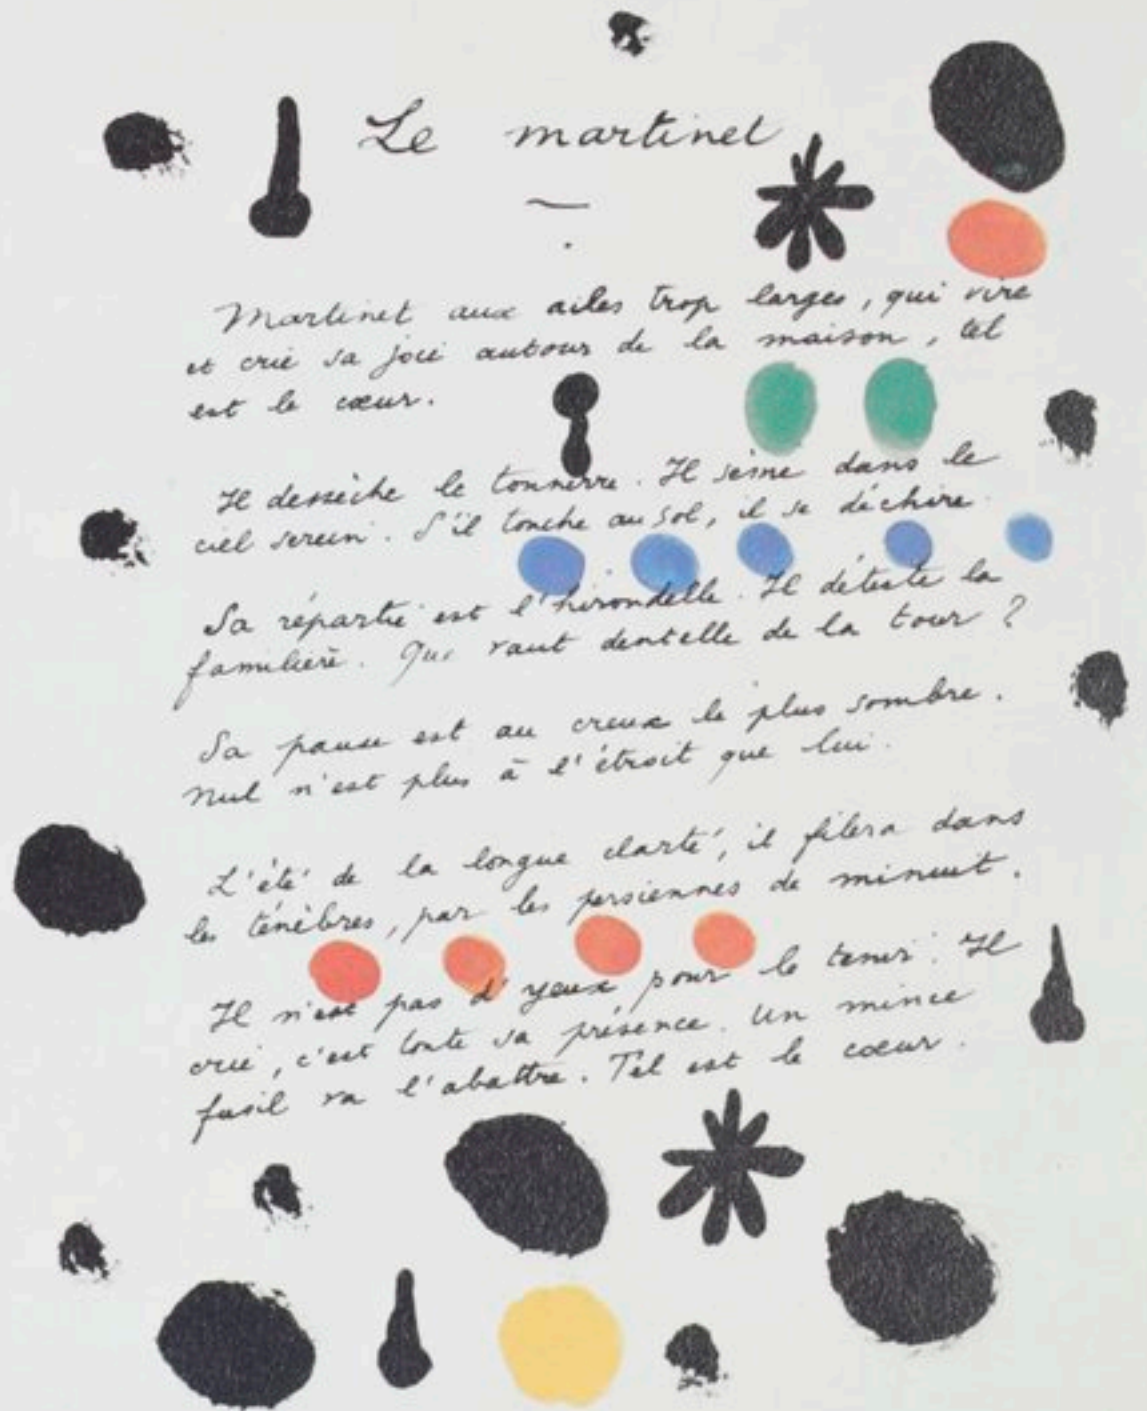 Le martinet
Martinet aux ailes trop larges, qui vire
et crie sa joie autour de la maison, tel
est le cœur.
Il dessèche le tonnerre. Il sème dans le
ciel serein. S'il touche au sol, il se déchire.
Sa répartie est l'hirondelle. Il déteste la
familière. Que vaut dentelle de la tour ?
Sa pause est au creux le plus sombre.
Nul n'est plus à l'étroit que lui.
L'été de la longue clarté, il filera dans
les ténèbres, par les persiennes de minuit.
Il n'est pas d'yeux pour le tenir. Il
crie, c'est toute sa présence. Un mince
fusil va l'abattre. Tel est le cœur.